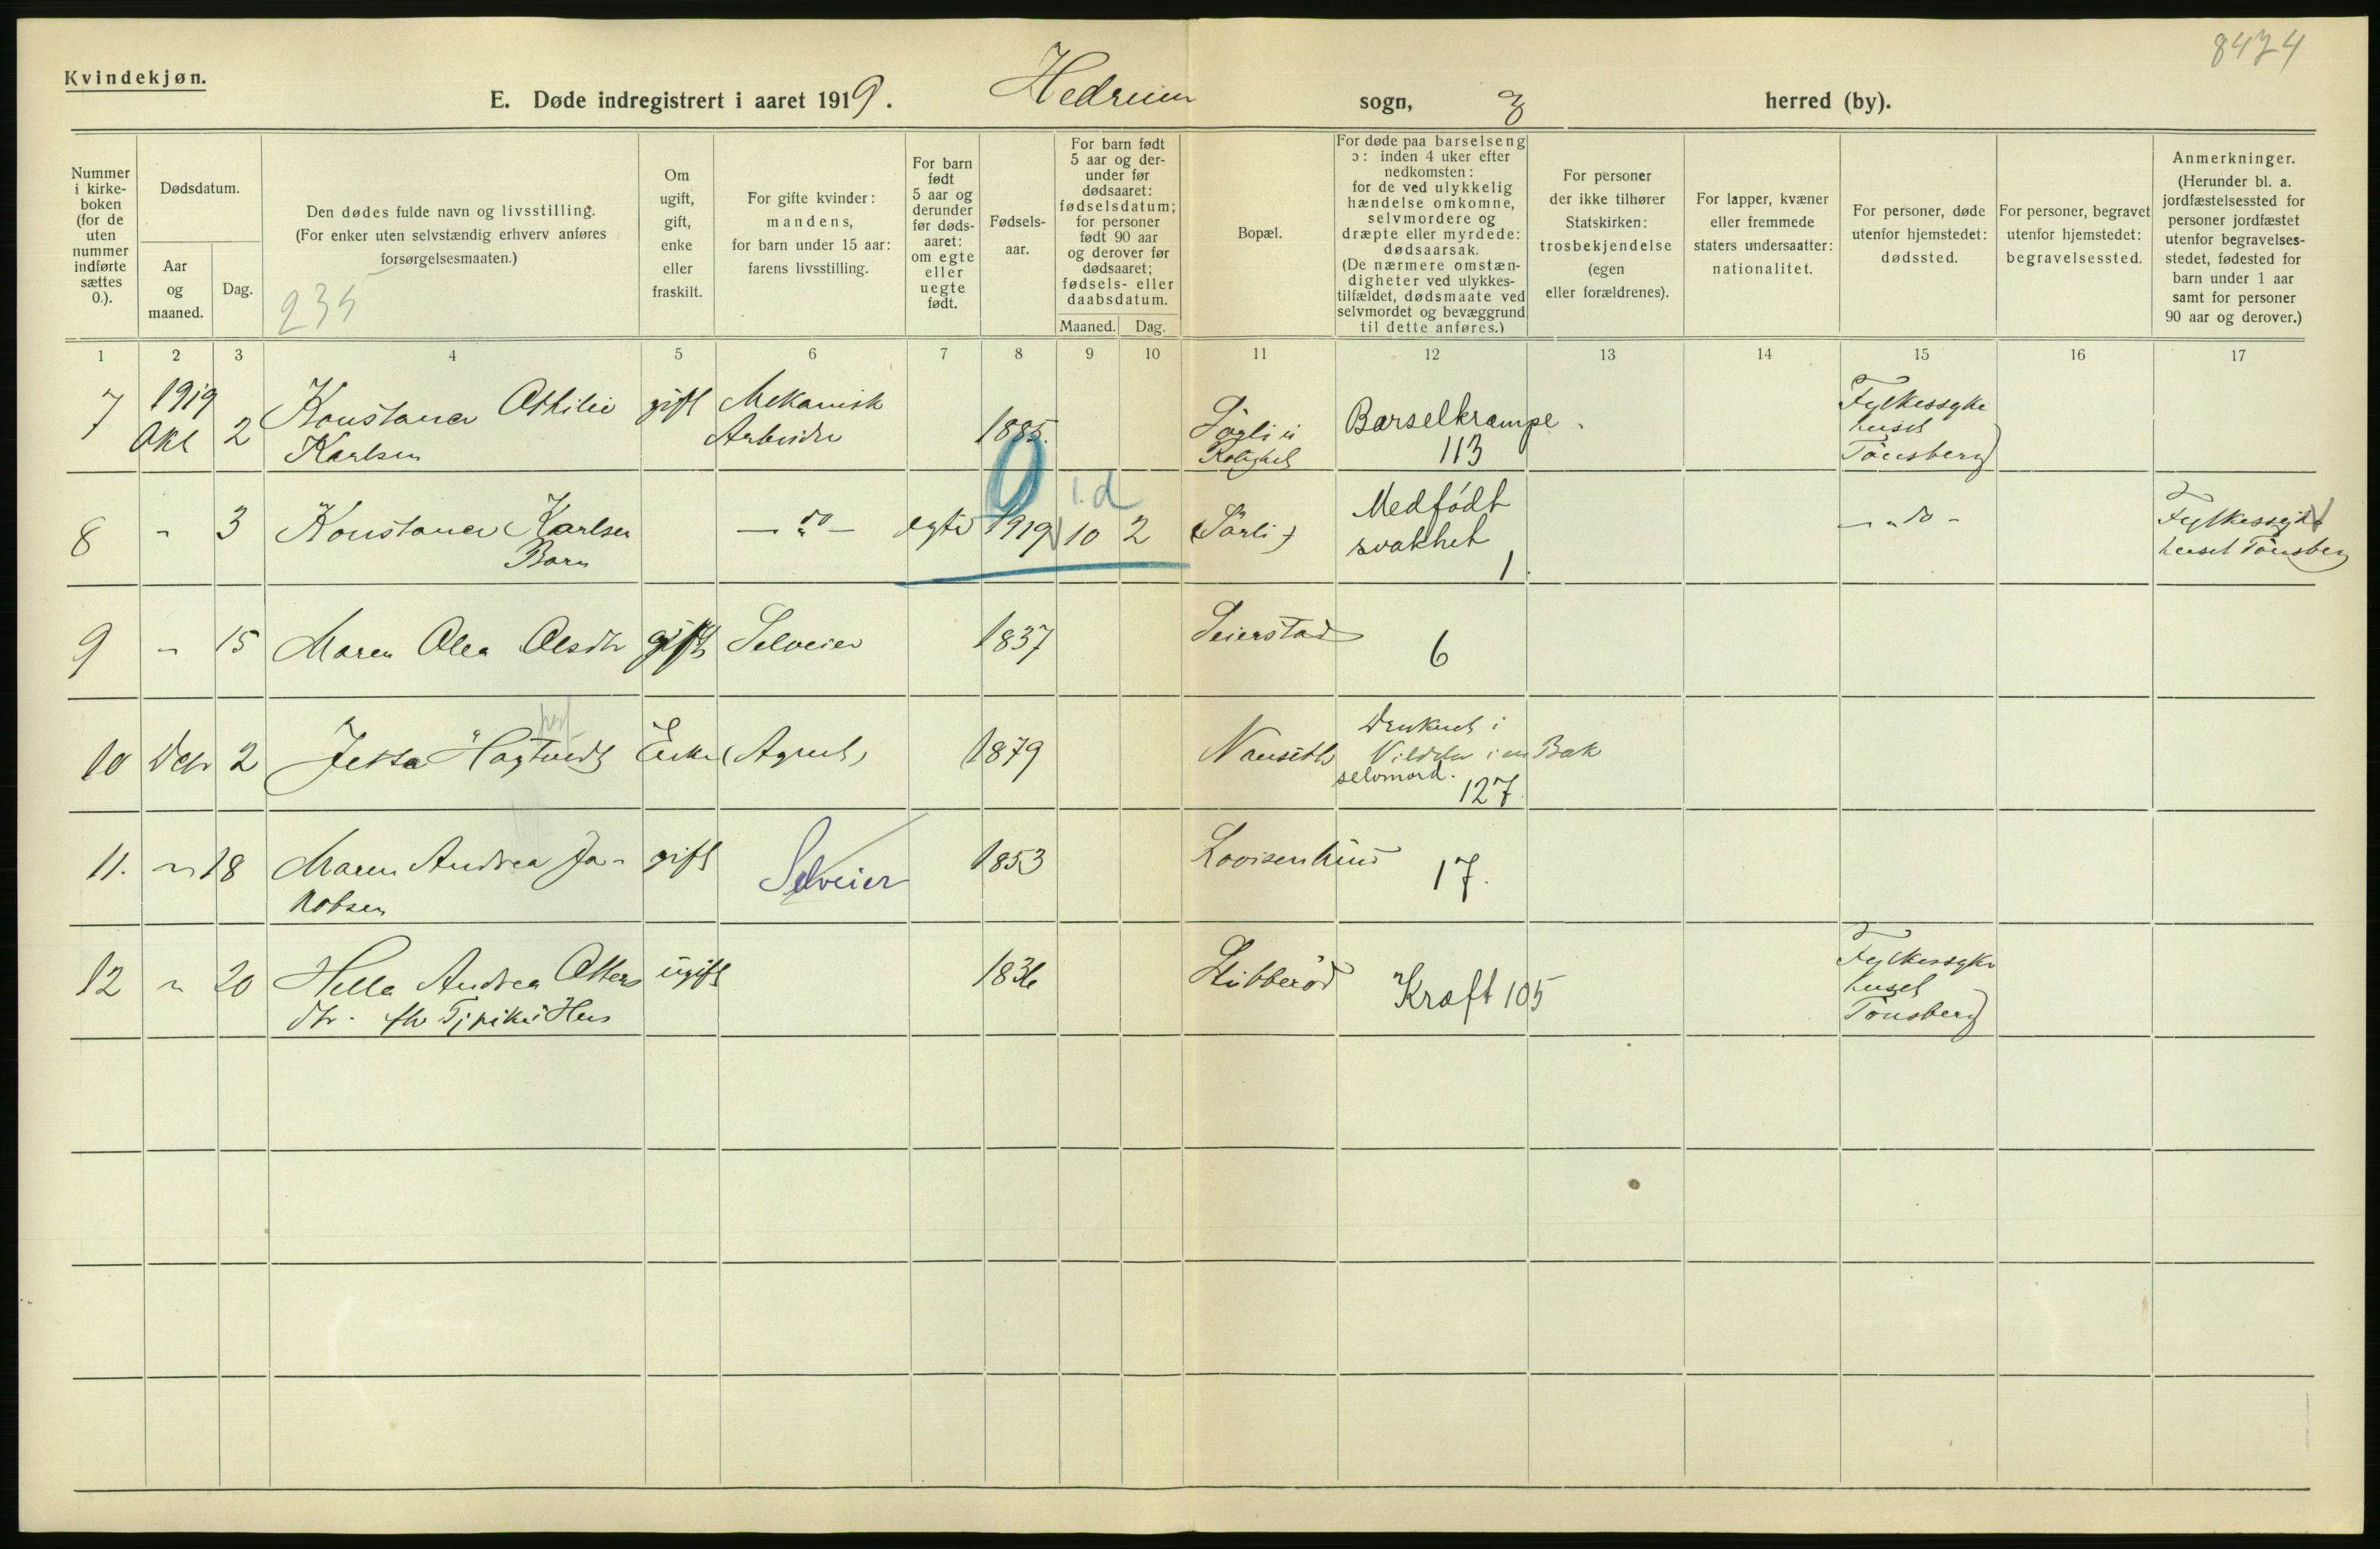 8474
Kvindekjøn.
E. Døde indregistrert i aaret 1919. Hedrum sogn, herred (by).
Nummer i kirkeboken (for de uten nummer indførte sættes 0.).
Dødsdatum.
Aar og maaned.
Dag.
Den dødes fulde navn og livsstilling.
(For enker uten selvstændig erhverv anføres forsørgelsesmaaten.)
235
Om ugift, gift, enke eller fraskilt.
For gifte kvinder: mandens, for barn under 15 aar: farens livsstilling.
For barn født 5 aar og derunder før dødsaaret: om egte eller uegte født.
Fødselsaar.
For barn født 5 aar og derunder før dødsaaret: fødselsdatum; for personer født 90 aar og derover før dødsaaret; fødsels- eller daabsdatum.
Maaned. Dag.
Bopæl.
For døde paa barselseng ɔ: inden 4 uker efter nedkomsten: for de ved ulykkelig hændelse omkomne, selvmordere og dræpte eller myrdede: dødsaarsak.
(De nærmere omstændigheter ved ulykkestilfældet, dødsmaate ved selvmordet og bevæggrund til dette anføres.)
For personer der ikke tilhører Statskirken: trosbekjendelse (egen eller forældrenes).
For lapper, kvæner eller fremmede staters undersaatter: nationalitet.
For personer, døde utenfor hjemstedet: dødssted.
For personer, begravet utenfor hjemstedet: begravelsessted.
Anmerkninger.
(Herunder bl. a. jordfæstelsessted for personer jordfæstet utenfor begravelsesstedet, fødested for barn under 1 aar samt for personer 90 aar og derover.)
1 2 3 4 5 6 7 8 9 10 11 12 13 14 15 16 17
7 1919 Okt 2 Konstance Othilie Karlsen gift Mekanisk Arbeider 1885. Rolighet Barselkrampe. 113 Fylkessyke huset Tönsberg
0 i.d
8 " 3 Konstance Karlsen Barn — " do — egte 1919 10 2 (Sörli) Medfödt svakhet 1. — " do - Fylkessyke huset Tönsberg
9 " 15 Maren Olea Olsdtr gift Selveier 1837 Seierstad 6
10 Debr 2 Jetta Hagtvedt Enke (Agent) 1879 Nanseth Druknet i Vildelse i en Bæk selvmord. 127
11. " 18 Maren Andrea Jakobsen gift Selveier 1853 Lovisenlund 17.
12 " 20 Helle Andrea Ottersdtr. ugift 1836 Stubberöd Kræft 105 Fylkessyke huset Tönsberg